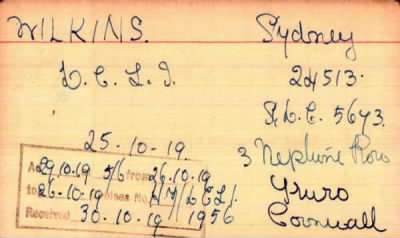 WILKINS. Sydney
D.C.L.I. 24513.
S.D.C. 5643.
25-10-19.
3 Neptune Row
A 29.10.19 5/6 from 26.10.19
to 26-10-19 Wines No. 4/7/D.C.L.I.
Truro
Received 30.10.19 / 1956
Cornwall